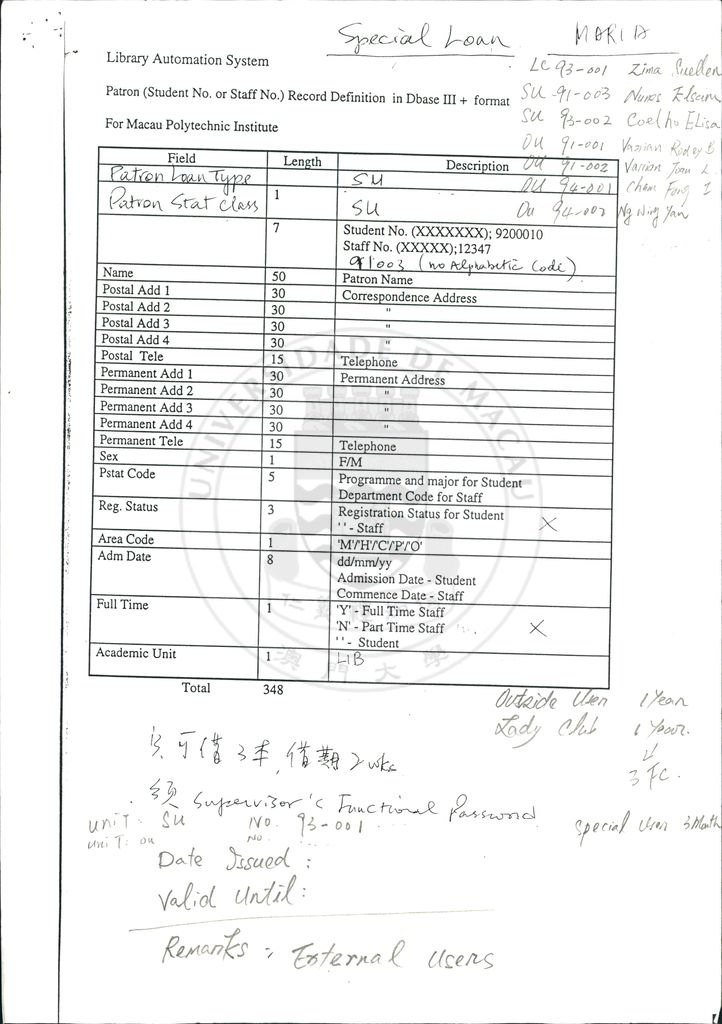 Special Loan
MARIA
Library Automation System
LC 93-001 Zima Suellen
Patron (Student No. or Staff No.) Record Definition in Dbase III + format
SU 91-003 Nunes Elsa
SU 93-002 Coelho Elisa
For Macau Polytechnic Institute
OU 91-001
OU 91-002
OU 94-001
Ou 94-002 Ng Wing Yan
Field Length Description
Patron Loan Type SU
Patron Stat Class 1 SU
7 Student No. (XXXXXXX); 9200010
Staff No. (XXXXX);12347
91003 (no Alphabetic Code)
Name 50 Patron Name
Postal Add 1 30 Correspondence Address
Postal Add 2 30 "
Postal Add 3 30 "
Postal Add 4 30 "
Postal Tele 15 Telephone
Permanent Add 1 30 Permanent Address
Permanent Add 2 30 "
Permanent Add 3 30 "
Permanent Add 4 30 "
Permanent Tele 15 Telephone
Sex 1 F/M
Pstat Code 5 Programme and major for Student
Department Code for Staff
Reg. Status 3 Registration Status for Student
' ' - Staff
Area Code 1 'M'/'H'/'C'/'P'/'O'
Adm Date 8 dd/mm/yy
Admission Date - Student
Commence Date - Staff
Full Time 1 'Y' - Full Time Staff
'N' - Part Time Staff
' ' - Student
Academic Unit 1 LIB
Total 348
UNIVERSIDADE DE MACAU
澳門大學
Outside User 1 Year
Lady Club 1 Year.
3 FC.
只可借3本, 借期2wks
須 Supervisor's Functional Password
unit: SU No. 93-001
Special User 3 Month
unit: ou No.
Date Issued :
Valid Until:
Remarks : External Users